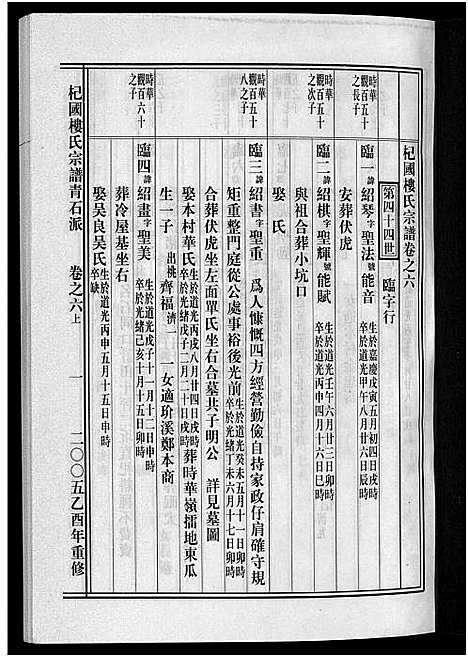 杞國樓氏宗譜卷之六
第四十四世　臨字行
時華
觀百五十
之長子
臨一諱紹琴字聖法號能音　生於嘉慶戊寅五月初四日戌時　卒於道光甲午八月廿六日辰時
安葬伏虎
時華
觀百五十
之次子
臨二諱紹棋字聖輝號能賦　生於道光壬午六月廿三日卯時　卒於道光丙申四月十六日巳時
與祖合葬小坑口
娶　氏
時華
觀百五十
八之子
臨三諱紹書字聖重　為人慷慨四方經營勤儉自持家政仔肩確守規
矩重整門庭從公處事裕後光前　生於道光癸未五月十一日卯時　卒於光緒丁未六月十七日卯時
合葬伏虎坐右左面單氏坐右合墓共子明公　詳見墓圖
娶本村華氏　生於道光丙戌八月廿四日戌時　卒於光緒戊子二月二十日卯時　葬時華嶺擂地東瓜
生一子　出桃　齊福濟二　一女適玠溪鄭本商
時華
觀百六十
之子
臨四諱紹畫字聖美　生於道光戊子十一月十二日申時　卒於光緒己亥十月十五日申時
葬冷屋基坐右
娶吳良吳氏　生於道光丙申五月十五日申時　卒缺
杞國樓氏宗譜青石派　卷之六上　一　二〇〇五乙酉年重修